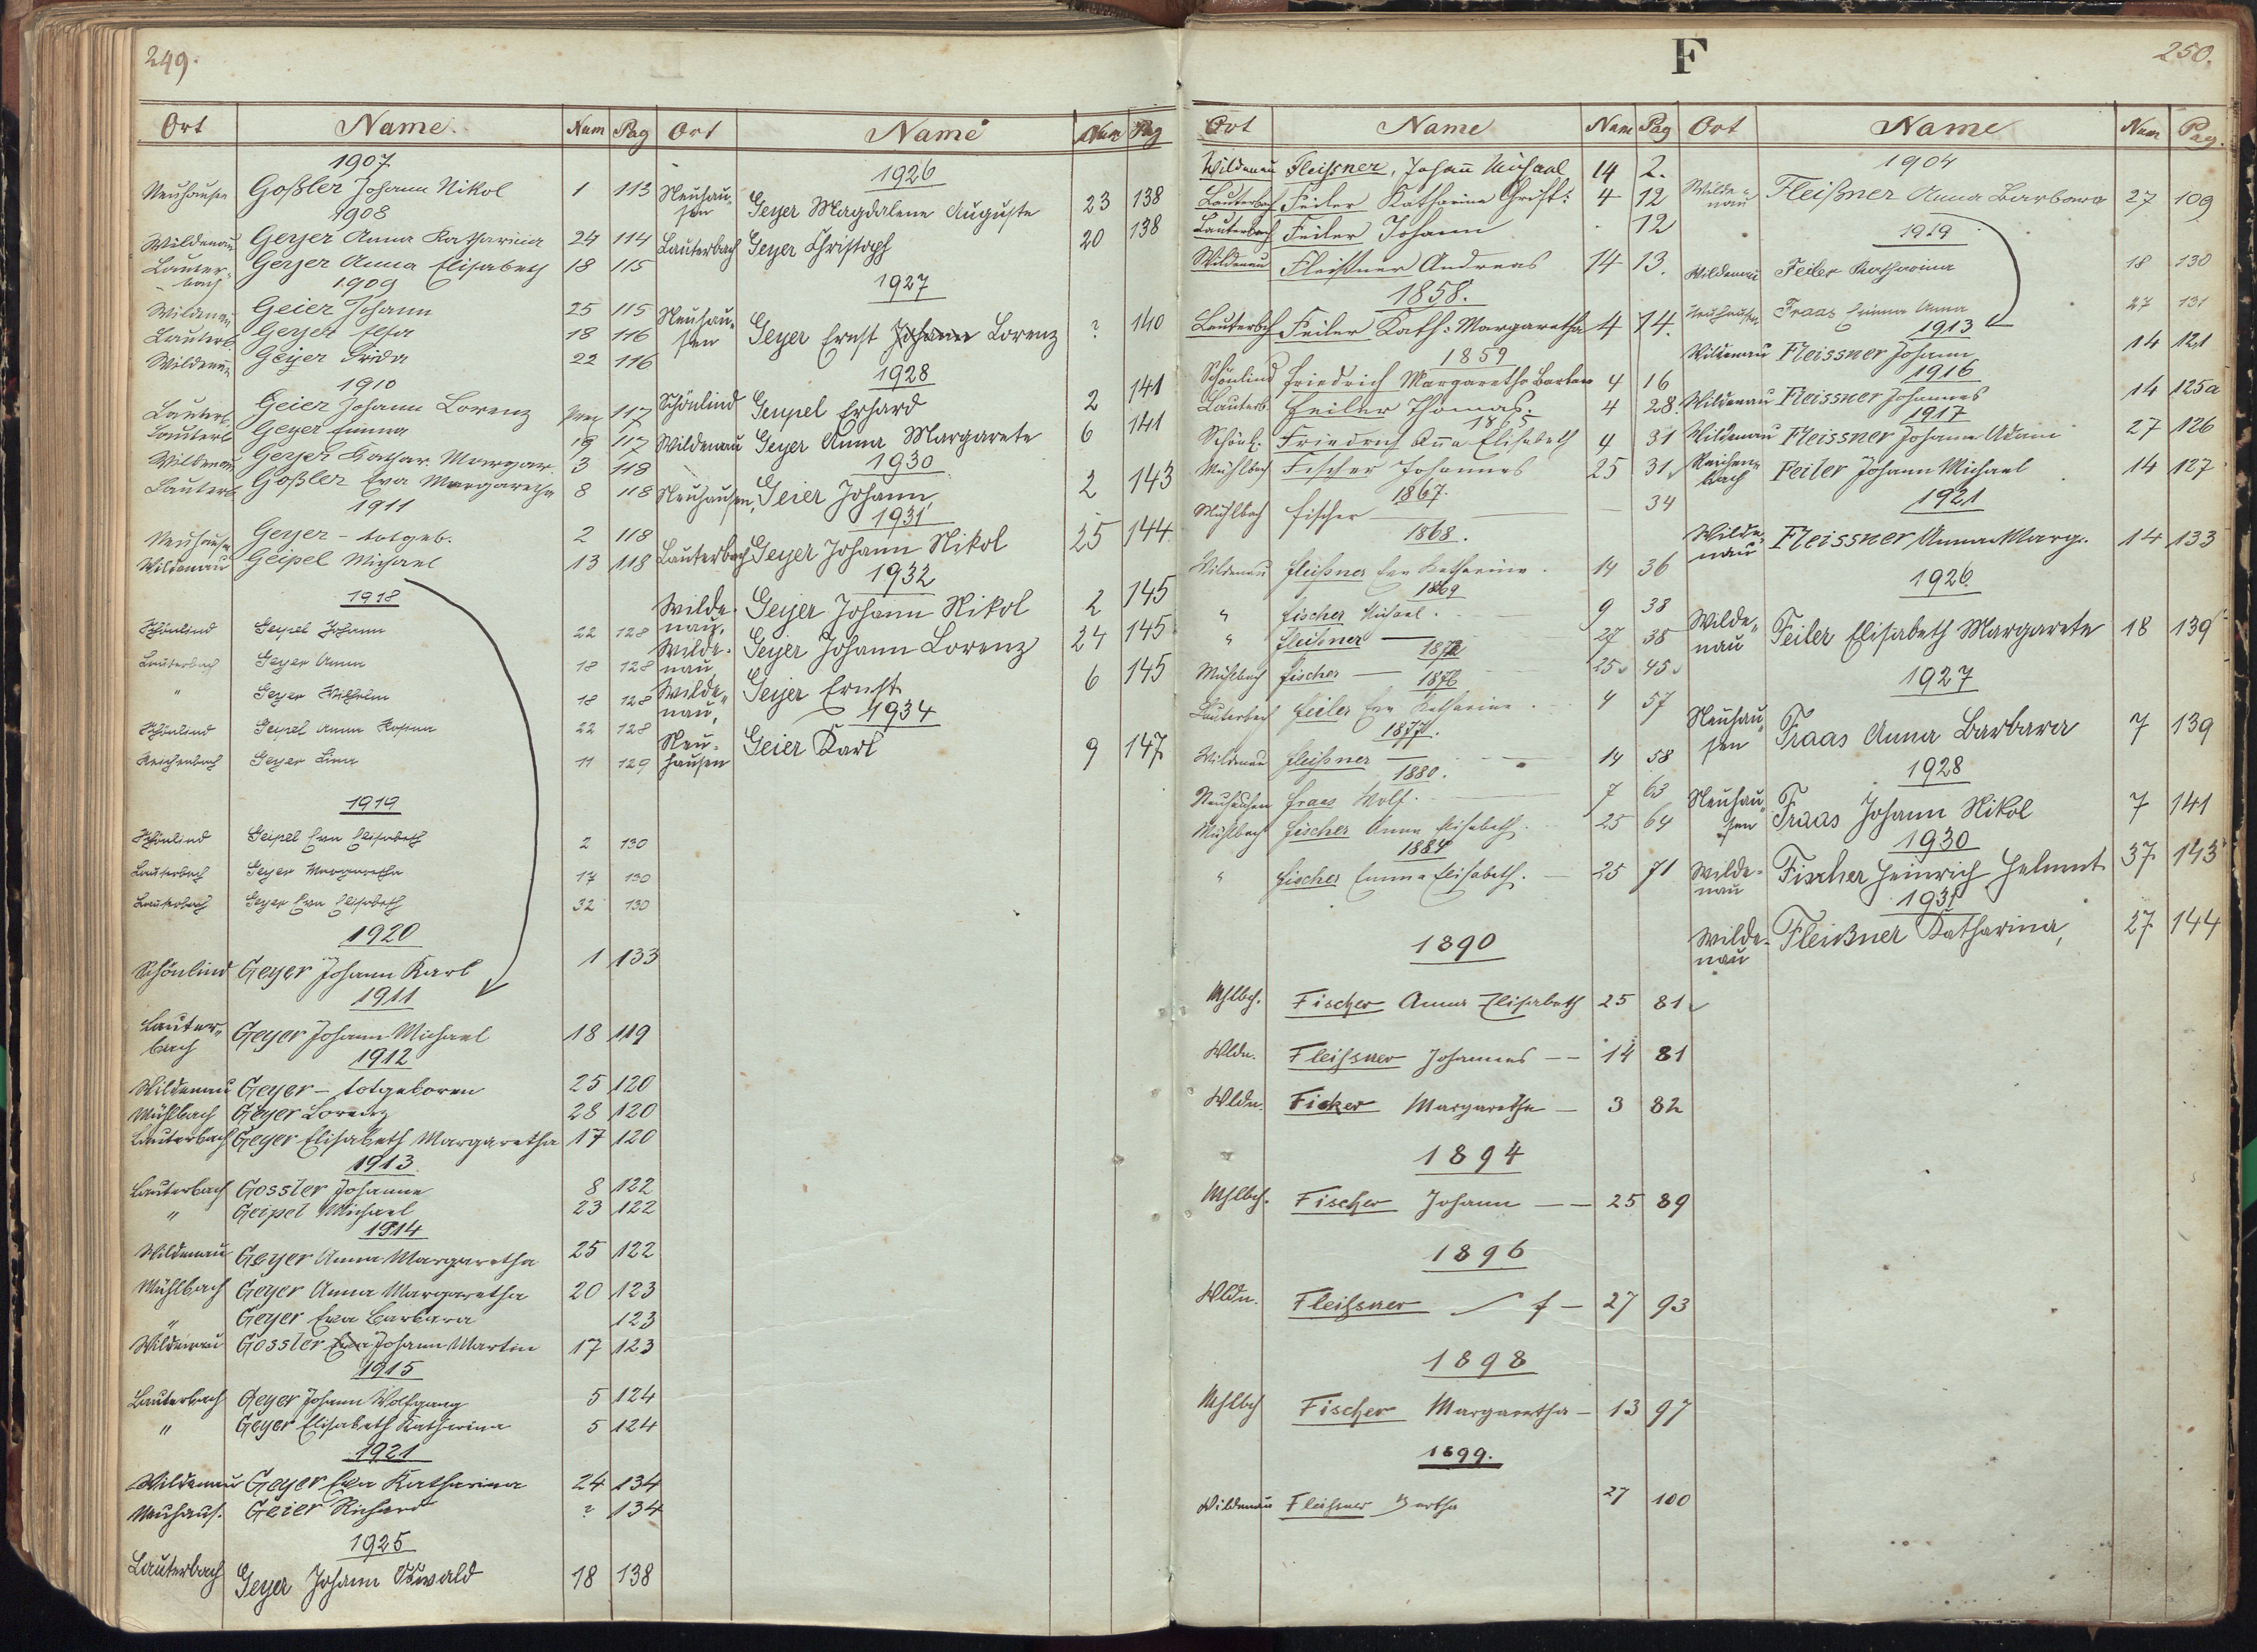 249.
Ort Name. Num Pag Ort Name Num Pag
1907
Neuhausen Goßler Johann Nikol 1 113
1908
Wildenau Geyer Anna Katharina 24 114
Lauter- Geyer Anna Elisabeth 18 115
bach
1909
Wildenau Geier Johann 25 115
Lauterb Geyer 18 116
Wildenau Geyer Frida 22 116
1910
Lauterb. Geier Johann Lorenz 117
Lauterb Geyer Emma 19 117
Wildenau Geyer Kathar. Margar. 3 118
Lauterb Goßler Eva Margaretha 8 118
1911
Neuhausen Geyer - totgeb. 2 118
Wildenau Geipel Michael 13 118
1918
Schönlind Geipel Johann 22 128
Lauterbach Geyer Anna 18 128
" Geyer Wilhelm 18 128
Schönlind Geipel Anna Rosina 22 128
Reichenbach Geyer Lina 11 129
1919
Schönlind Geipel Eva Elisabeth 2 130
Lauterbach Geyer Margaretha 17 130
Lauterbach Geyer Eva Elisabeth 32 130
1920
Schönlind Geyer Johann Karl 1 133
1911
Lauter- Geyer Johann Michael 18 119
bach
1912
Wildenau Geyer - totgeboren 25 120
Mühlbach Geyer Lorenz 28 120
Lauterbach Geyer Elisabeth Margaretha 17 120
1913
Lauterbach Gossler Johanne 8 122
" Geipel Michael 23 122
1914
Wildenau Geyer Anna Margaretha 25 122
Mühlbach Geyer Anna Margaretha 20 123
" Geyer Eva Barbara 123
Wildenau Gossler Eva Johann Martin 17 123
1915
Lauterbach Geyer Johann Wolfgang 5 124
" Geyer Elisabeth Katharina 5 124
1921
Wildenau Geyer Eva Katharina 24 134
Neuhaus. Geier Richard ? 134
1925
Lauterbach Geyer Johann Oswald 18 138
1926
Neuhau- Geyer Magdalene Auguste 23 138
sen
Lauterbach Geyer Christoph 20 138
1927
Neuhau- Geyer Ernst Johann Lorenz ? 140
sen
1928
Schönlind Geypel Erhard 2 141
Wildenau Geyer Anna Margarete 6 141
1930
Neuhausen, Geier Johann 2 143
1931
Lauterbach Geyer Johann Nikol 25 144
1932
Wilde- Geyer Johann Nikol 2 145
nau,
Wilde- Geyer Johann Lorenz 24 145
nau
Wilde- Geyer Ernst 6 145
nau,
1934
Neu- Geier Karl 9 147
hausen
F 250.
Ort Name Num Pag Ort Name Num Pag.
Wildenau Fleißner, Johann Michael 14 2.
Lauterbach Feiler Katharina Christ: 4 12
Lauterbach Feiler Johann 12
Wildenau Fleißner Andreas 14 13.
1858.
Lauterbch Feiler Kath: Margaretha 4 14.
1859
Schönlind Friedrich Margaretha Barbara 4 16
Lauterb. Feiler Thomas. 4 28.
Schönl. Friedrich Anna Elisabeth 4 31
Mühlbach Fischer Johannes 25 31
1867.
Mühlbach Fischer 34
1868.
Wildenau Fleißner Eva Katharina. 14 36
1869
" Fischer Michael. 9 38
" Fleißner 27 38
1872
Mühlbach Fischer 25 45
1876
Lauterbach Feiler Eva Katharina. 4 57
1877.
Wildenau Fleißner 14 58
1880.
Neuhausen Fraas Wolf. 7 63
Mühlbach Fischer Anna Elisabeth. 25 64
1884
" Fischer Emma Elisabeth. 25 71
1890
Mhlbch. Fischer Anna Elisabeth 25 81
Wldn. Fleißner Johannes 14 81
Wldn. Ficker Margaretha 3 82
1894
Mhlbch. Fischer Johann 25 89
1896
Wldn. Fleißner 27 93
1898
Mhlbch Fischer Margaretha 13 97
1899.
Wildenau Fleißner Bertha 27 100
1904
Wilde- Fleißner Anna Barbara 27 109
nau
1919
Wildenau Feiler Katharina 18 130
Neuhausen Fraas Emma Anna 27 131
1913
Wildenau Fleissner Johann 14 121
1916
Wildenau Fleissner Johannes 14 125a
1917
Wildenau Fleissner Johann Adam 27 126
Reichen- Feiler Johann Michael 14 127
bach
1921
Wilde- Fleissner Anna Marg. 14 133
nau
1926
Wilde- Feiler Elisabeth Margarete 18 139
nau
1927
Neuhau- Fraas Anna Barbara 7 139
sen
1928
Neuhau- Fraas Johann Nikol 7 141
sen
1930
Wilde- Fischer Heinrich Helmut 37 143
nau
1931
Wilde- Fleißner Katharina, 27 144
nau